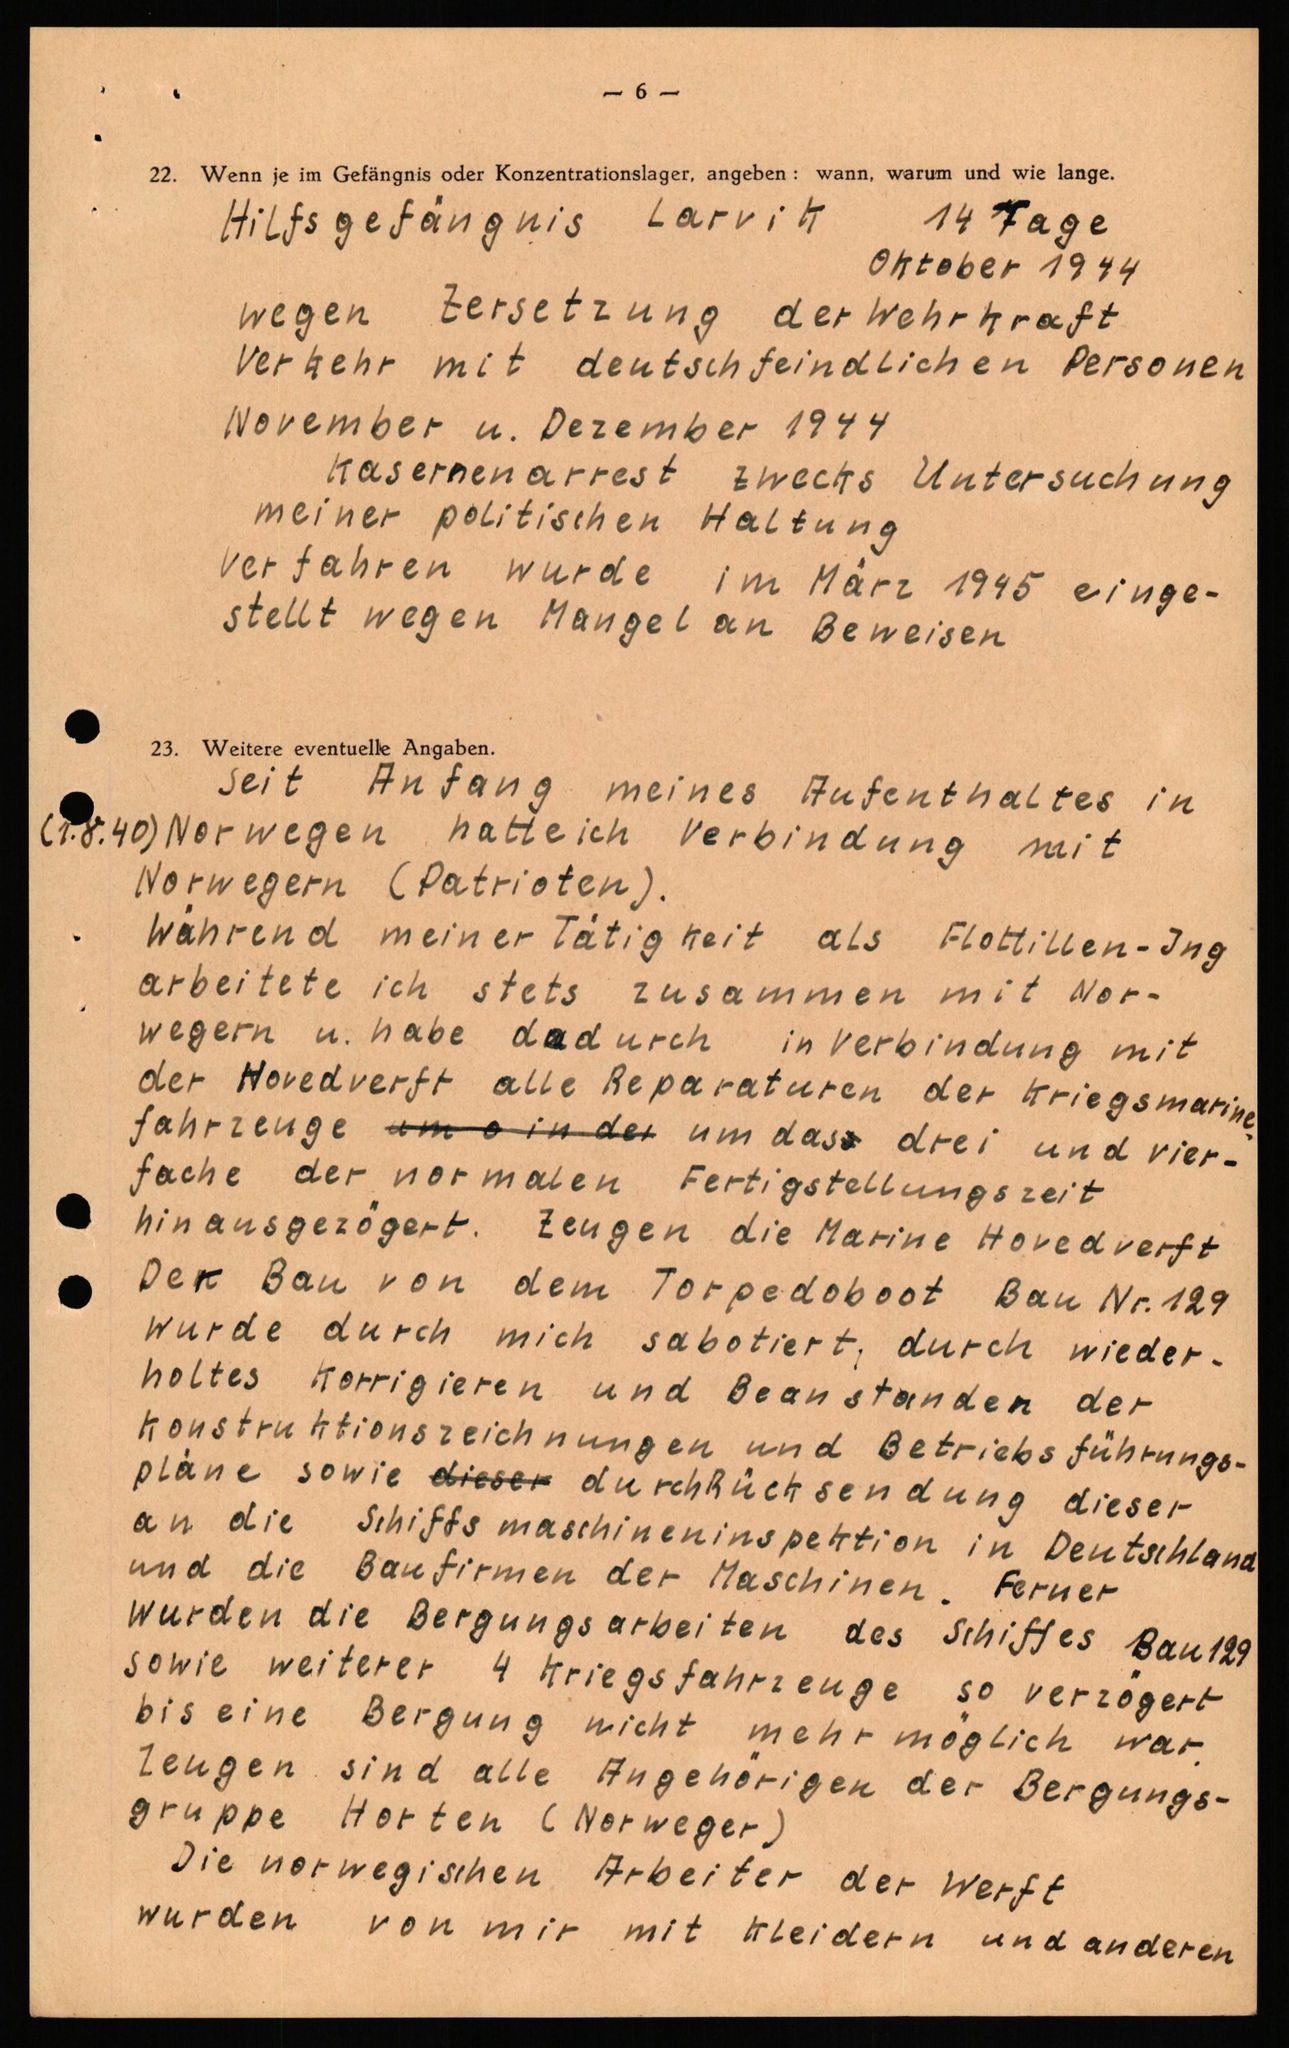 — 6 —
22. Wenn je im Gefängnis oder Konzentrationslager, angeben: wann, warum und wie lange.
Hilfsgefängnis Larvik 14 Tage
Oktober 1944
wegen Zersetzung der Wehrkraft
Verkehr mit deutschfeindlichen Personen
November u. Dezember 1944
Kasernenarrest zwecks Untersuchung
meiner politischen Haltung
Verfahren wurde im März 1945 einge-
stellt wegen Mangel an Beweisen
23. Weitere eventuelle Angaben.
Seit Anfang meines Aufenthaltes in
(1.8.40) Norwegen hatte ich Verbindung mit
Norwegern (Patrioten).
Während meiner Tätigkeit als Flottillen-Ing
arbeitete ich stets zusammen mit Nor-
wegern u. habe dadurch in Verbindung mit
der Hovedverft alle Reparaturen der Kriegsmarine-
fahrzeuge um o in der um dass drei und vier-
fache der normalen Fertigstellungszeit
hinausgezögert. Zeugen die Marine Hovedverft
Der Bau von dem Torpedoboot Bau Nr. 129
wurde durch mich sabotiert, durch wieder-
holtes Korrigieren und Beanstanden der
Konstruktionszeichnungen und Betriebsführungs-
pläne sowie dieser durch Rücksendung dieser
an die Schiffsmaschineninspektion in Deutschland
und die Baufirmen der Maschinen. Ferner
wurden die Bergungsarbeiten des Schiffes Bau 129
sowie weiterer 4 Kriegsfahrzeuge so verzögert
bis eine Bergung nicht mehr möglich war.
Zeugen sind alle Angehörigen der Bergungs-
gruppe Horten (Norweger)
Die norwegischen Arbeiter der Werft
wurden von mir mit Kleidern und anderen